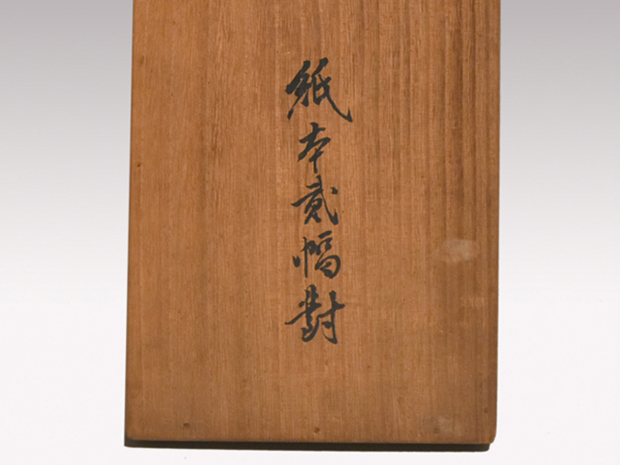 紙本貳幅對